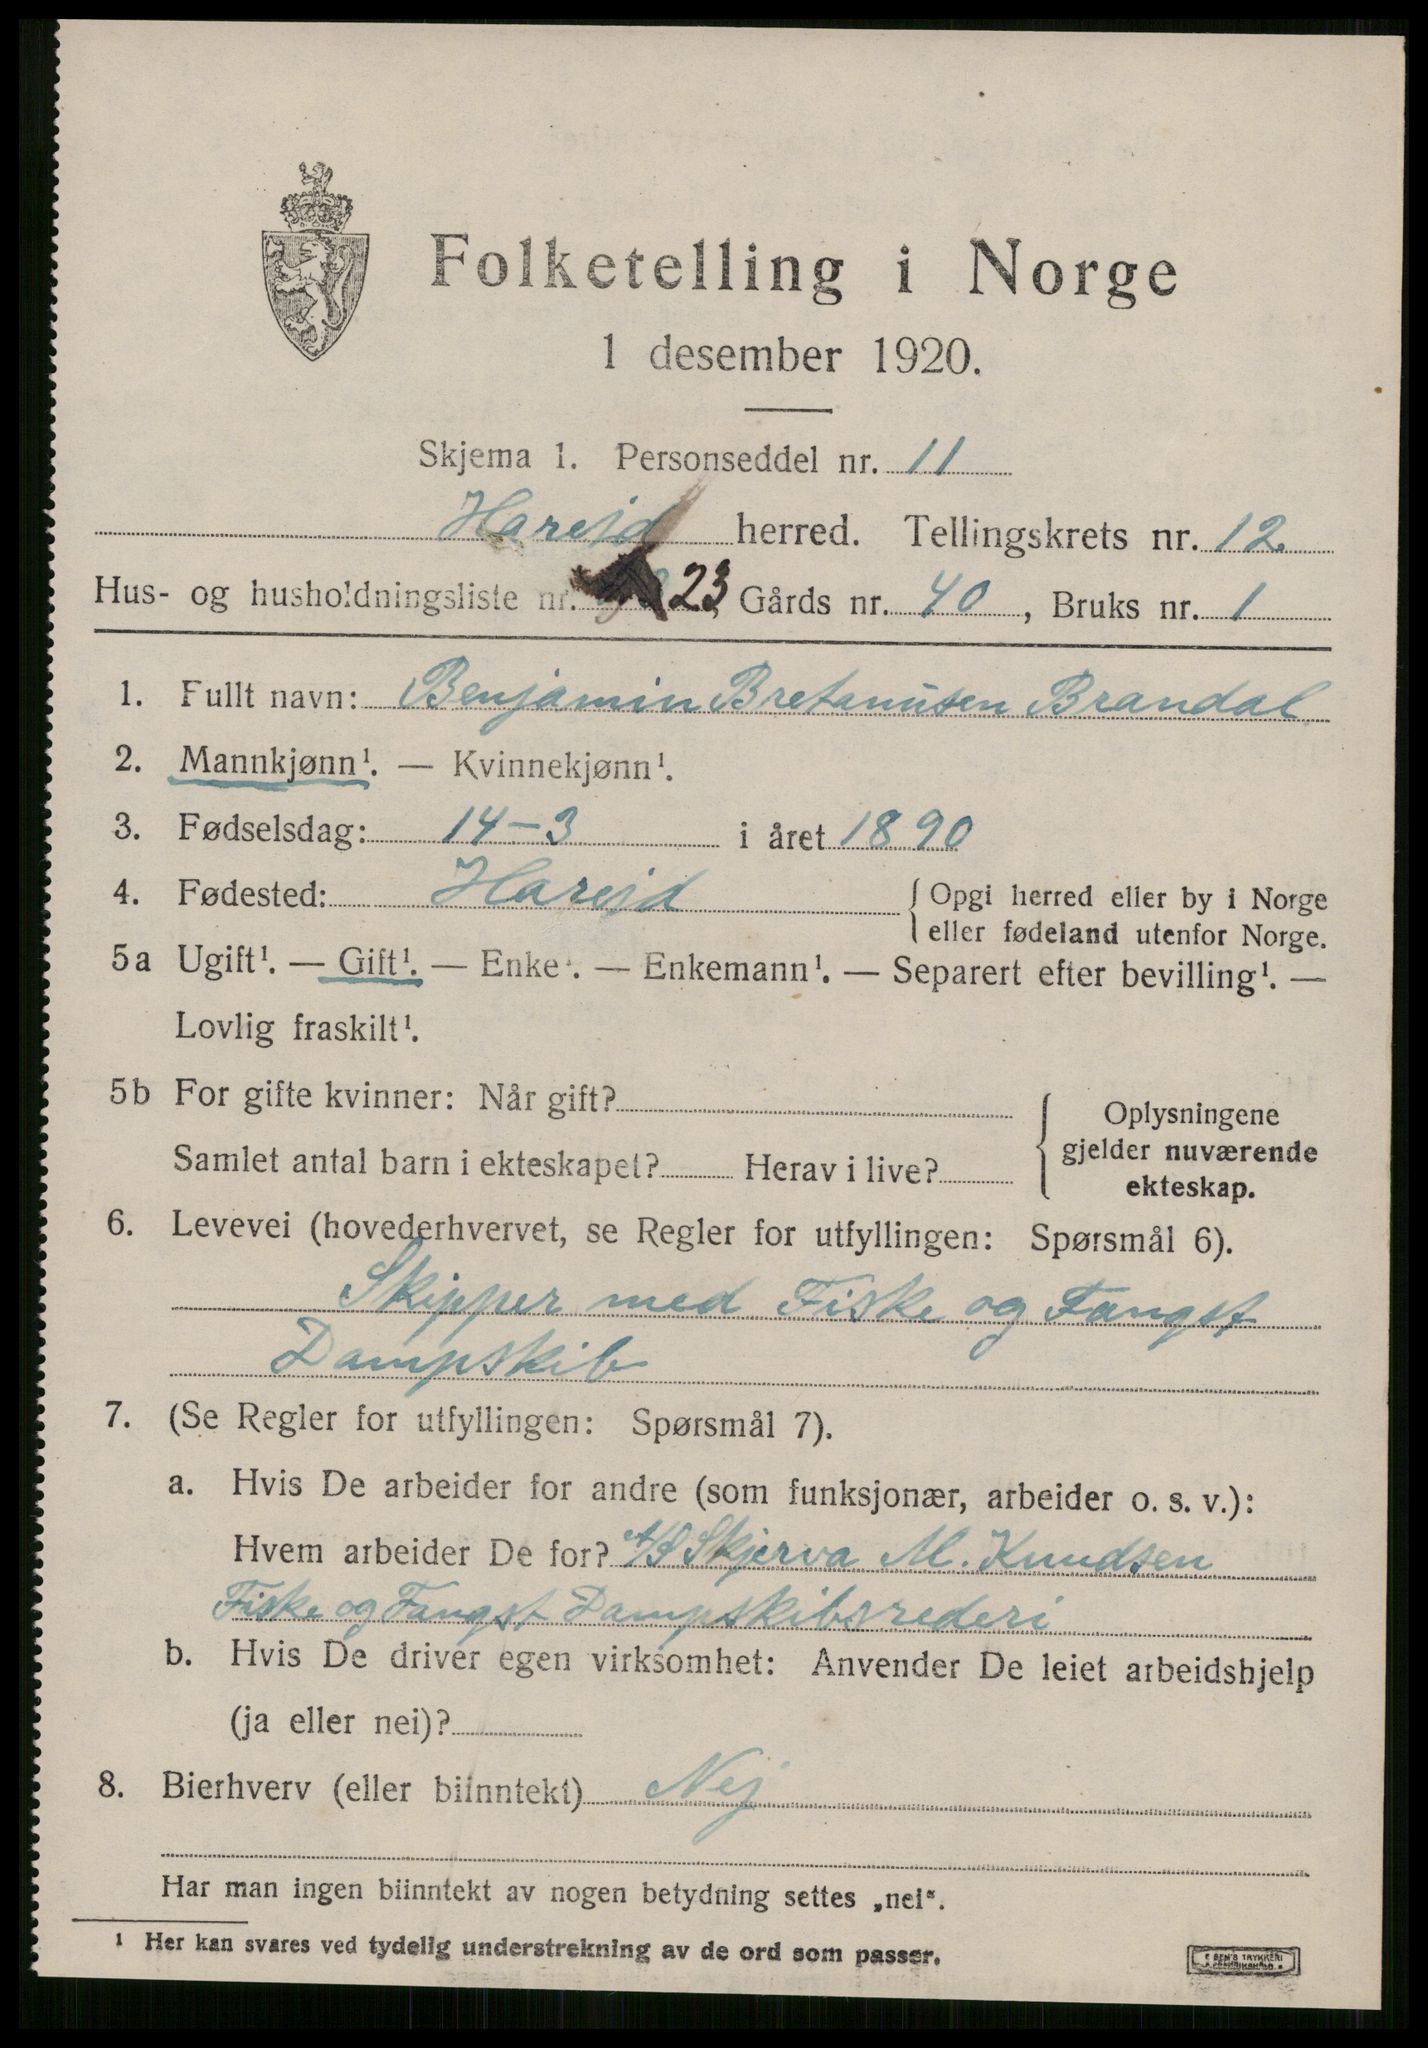 Folketelling i Norge
1 desember 1920.
Skjema 1. Personseddel nr. 11
Hareid herred. Tellingskrets nr. 12.
Hus- og husholdningsliste nr. 23, Gårds nr. 40, Bruks nr. 1
1. Fullt navn: Benjamin Bretanusen Brandal
2. Mannkjønn¹. — Kvinnekjønn¹.
3. Fødselsdag: 14-3 i året 1890
4. Fødested: Hareid { Opgi herred eller by i Norge
eller fødeland utenfor Norge.
5a Ugift¹. — Gift¹. — Enke¹. — Enkemann¹. — Separert efter bevilling¹. —
Lovlig fraskilt¹.
5b For gifte kvinner: Når gift? { Oplysningene
gjelder nuværende
ekteskap.
Samlet antal barn i ekteskapet? Herav i live?
6. Levevei (hovederhvervet, se Regler for utfyllingen: Spørsmål 6).
Skipper med Fiske og Fangst
Dampskib
7. (Se Regler for utfyllingen: Spørsmål 7).
a. Hvis De arbeider for andre (som funksjonær, arbeider o. s. v.):
Hvem arbeider De for? A/S Skjerva M. Knudsen
Fiske og Fangst Dampskibsrederi
b. Hvis De driver egen virksomhet: Anvender De leiet arbeidshjelp
(ja eller nei)?
8. Bierhverv (eller biinntekt) Nej
Har man ingen biinntekt av nogen betydning settes „nei“.
¹ Her kan svares ved tydelig understrekning av de ord som passer.